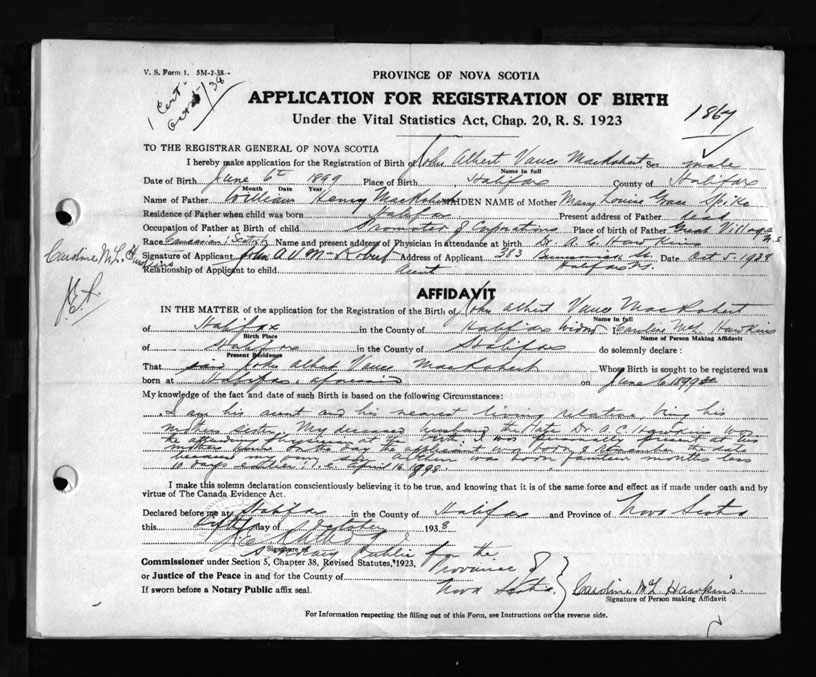 V. S. Form 1. 5M-2-38
1 Cert. Oct 5/38
PROVINCE OF NOVA SCOTIA
APPLICATION FOR REGISTRATION OF BIRTH
1867
Under the Vital Statistics Act, Chap. 20, R. S. 1923
TO THE REGISTRAR GENERAL OF NOVA SCOTIA
I hereby make application for the Registration of Birth of John Albert Vance MacRobert Sex male
Name in full
Date of Birth June 6th 1899 Place of Birth Halifax County of Halifax
Month Date Year
Name of Father William Henry MacRobert MAIDEN NAME of Mother Mary Louise Grace Spike
Residence of Father when child was born Halifax Present address of Father dead
Occupation of Father at Birth of child Promoter of Corporations Place of birth of Father Great Village N.S
Race Caucasian (Scotch) Name and present address of Physician in attendance at birth Dr. A. C. Hawkins
Caroline McL. Hawkins
Signature of Applicant John A V McRobert Address of Applicant 383 Brunswick St. Halifax N.S. Date Oct 5. 1938
Relationship of Applicant to child Aunt
AFFIDAVIT
IN THE MATTER of the application for the Registration of the Birth of John Albert Vance MacRobert
Name in full
of Halifax in the County of Halifax widow Caroline McL Hawkins
Birth Place Name of Person Making Affidavit
of Halifax in the County of Halifax do solemnly declare :
Present Residence
That said John Albert Vance MacRobert Whose Birth is sought to be registered was
born at Halifax, aforesaid on June 6 1899
My knowledge of the fact and date of such Birth is based on the following Circumstances:
I am his aunt and his nearest living relative being his
mothers sister. My deceased husband the late Dr. A.C. Hawkins was
the attending physician at the birth. I was personally present at his
mothers home on the day the applicant was born. I remember the day
because my own son was born fourteen months less
10 days earlier i.e. April 16 1898
I make this solemn declaration conscientiously believing it to be true, and knowing that it is of the same force and effect as if made under oath and by
virtue of The Canada Evidence Act.
Declared before me at Halifax in the County of Halifax and Province of Nova Scotia
this Fifth day of October 1938
Signature of
A Notary Public for the Province of Nova Scotia
Commissioner under Section 5, Chapter 38, Revised Statutes, 1923,
or Justice of the Peace in and for the County of
If sworn before a Notary Public affix seal.
Caroline McL Hawkins
Signature of Person making Affidavit
For Information respecting the filling out of this Form, see Instructions on the reverse side.